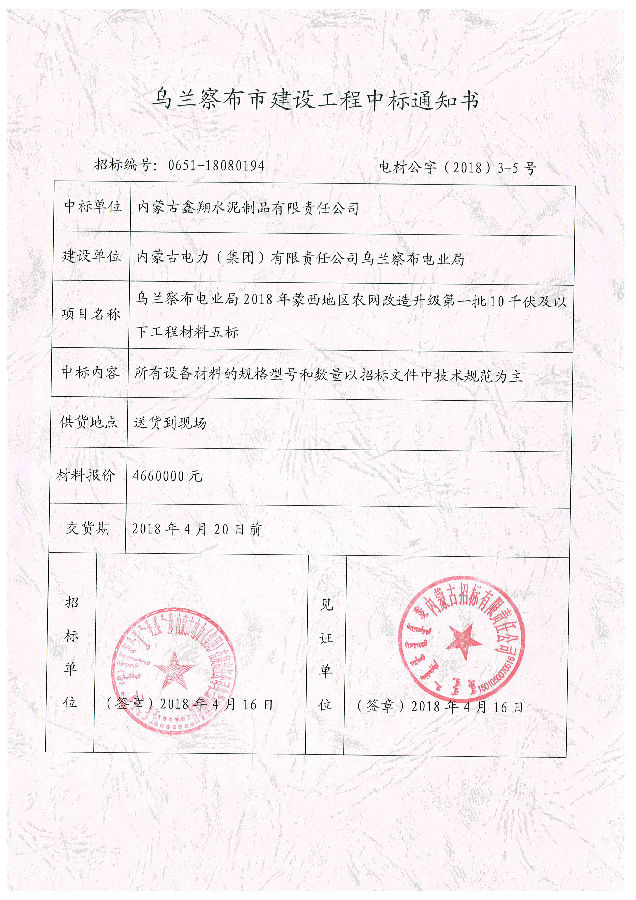 乌兰察布市建设工程中标通知书
招标编号: 0651-18080194
电材公字（2018）3-5号
中标单位 内蒙古鑫翔水泥制品有限责任公司
建设单位 内蒙古电力（集团）有限责任公司乌兰察布电业局
项目名称 乌兰察布电业局2018年蒙西地区农网改造升级第一批10千伏及以
下工程材料五标
中标内容 所有设备材料的规格型号和数量以招标文件中技术规范为主
供货地点 送货到现场
材料报价 4660000元
交货期 2018年4月20日前
招标单位
（签章）2018年4月16日
见证单位
内蒙古招标有限责任公司
（签章）2018年4月16日